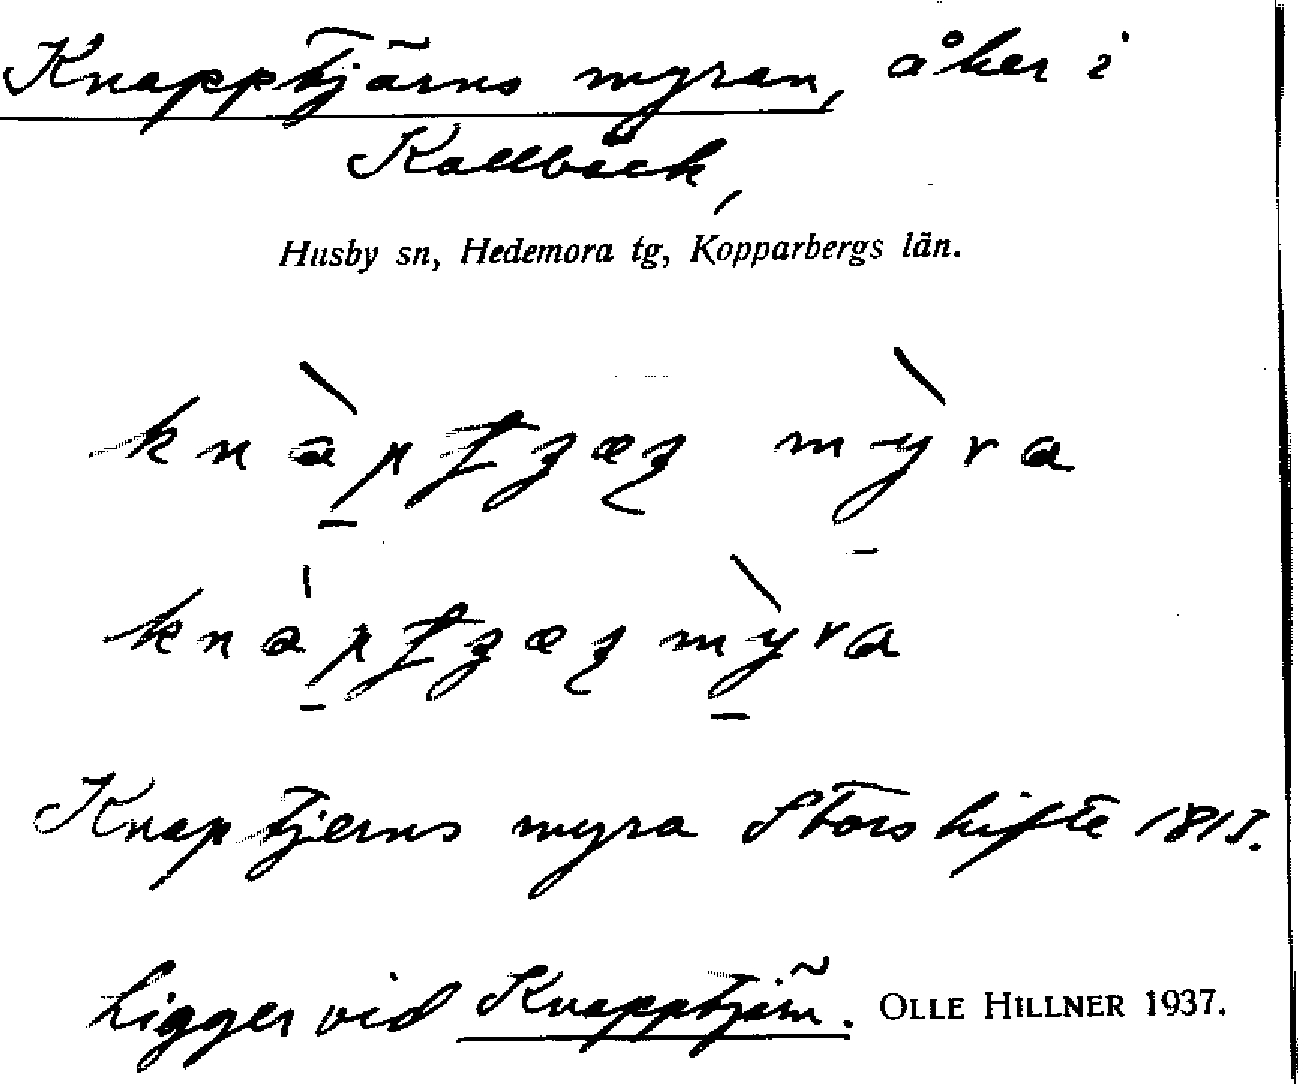 Knapptjärns myran, åker i
Kallbäck,
Husby sn, Hedemora tg, Kopparbergs län.
myra
myra
Knaptjerns myra Storskifte 181
Ligger vid Knapptjärn. OLLE HILLNER 1937.